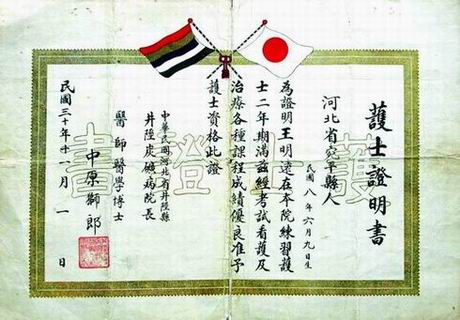 護士證明書
河北省宛平縣人
民國八年六月九日生
為證明王明遠在本院練習護
士二年期滿茲經考試看護及
治療各種課程成績優良准予
護士資格此證
中華民國河北省井陘縣
井陘炭礦病院長
醫師醫學博士
中原獅郎
民國三十年十一月一日
護士證書